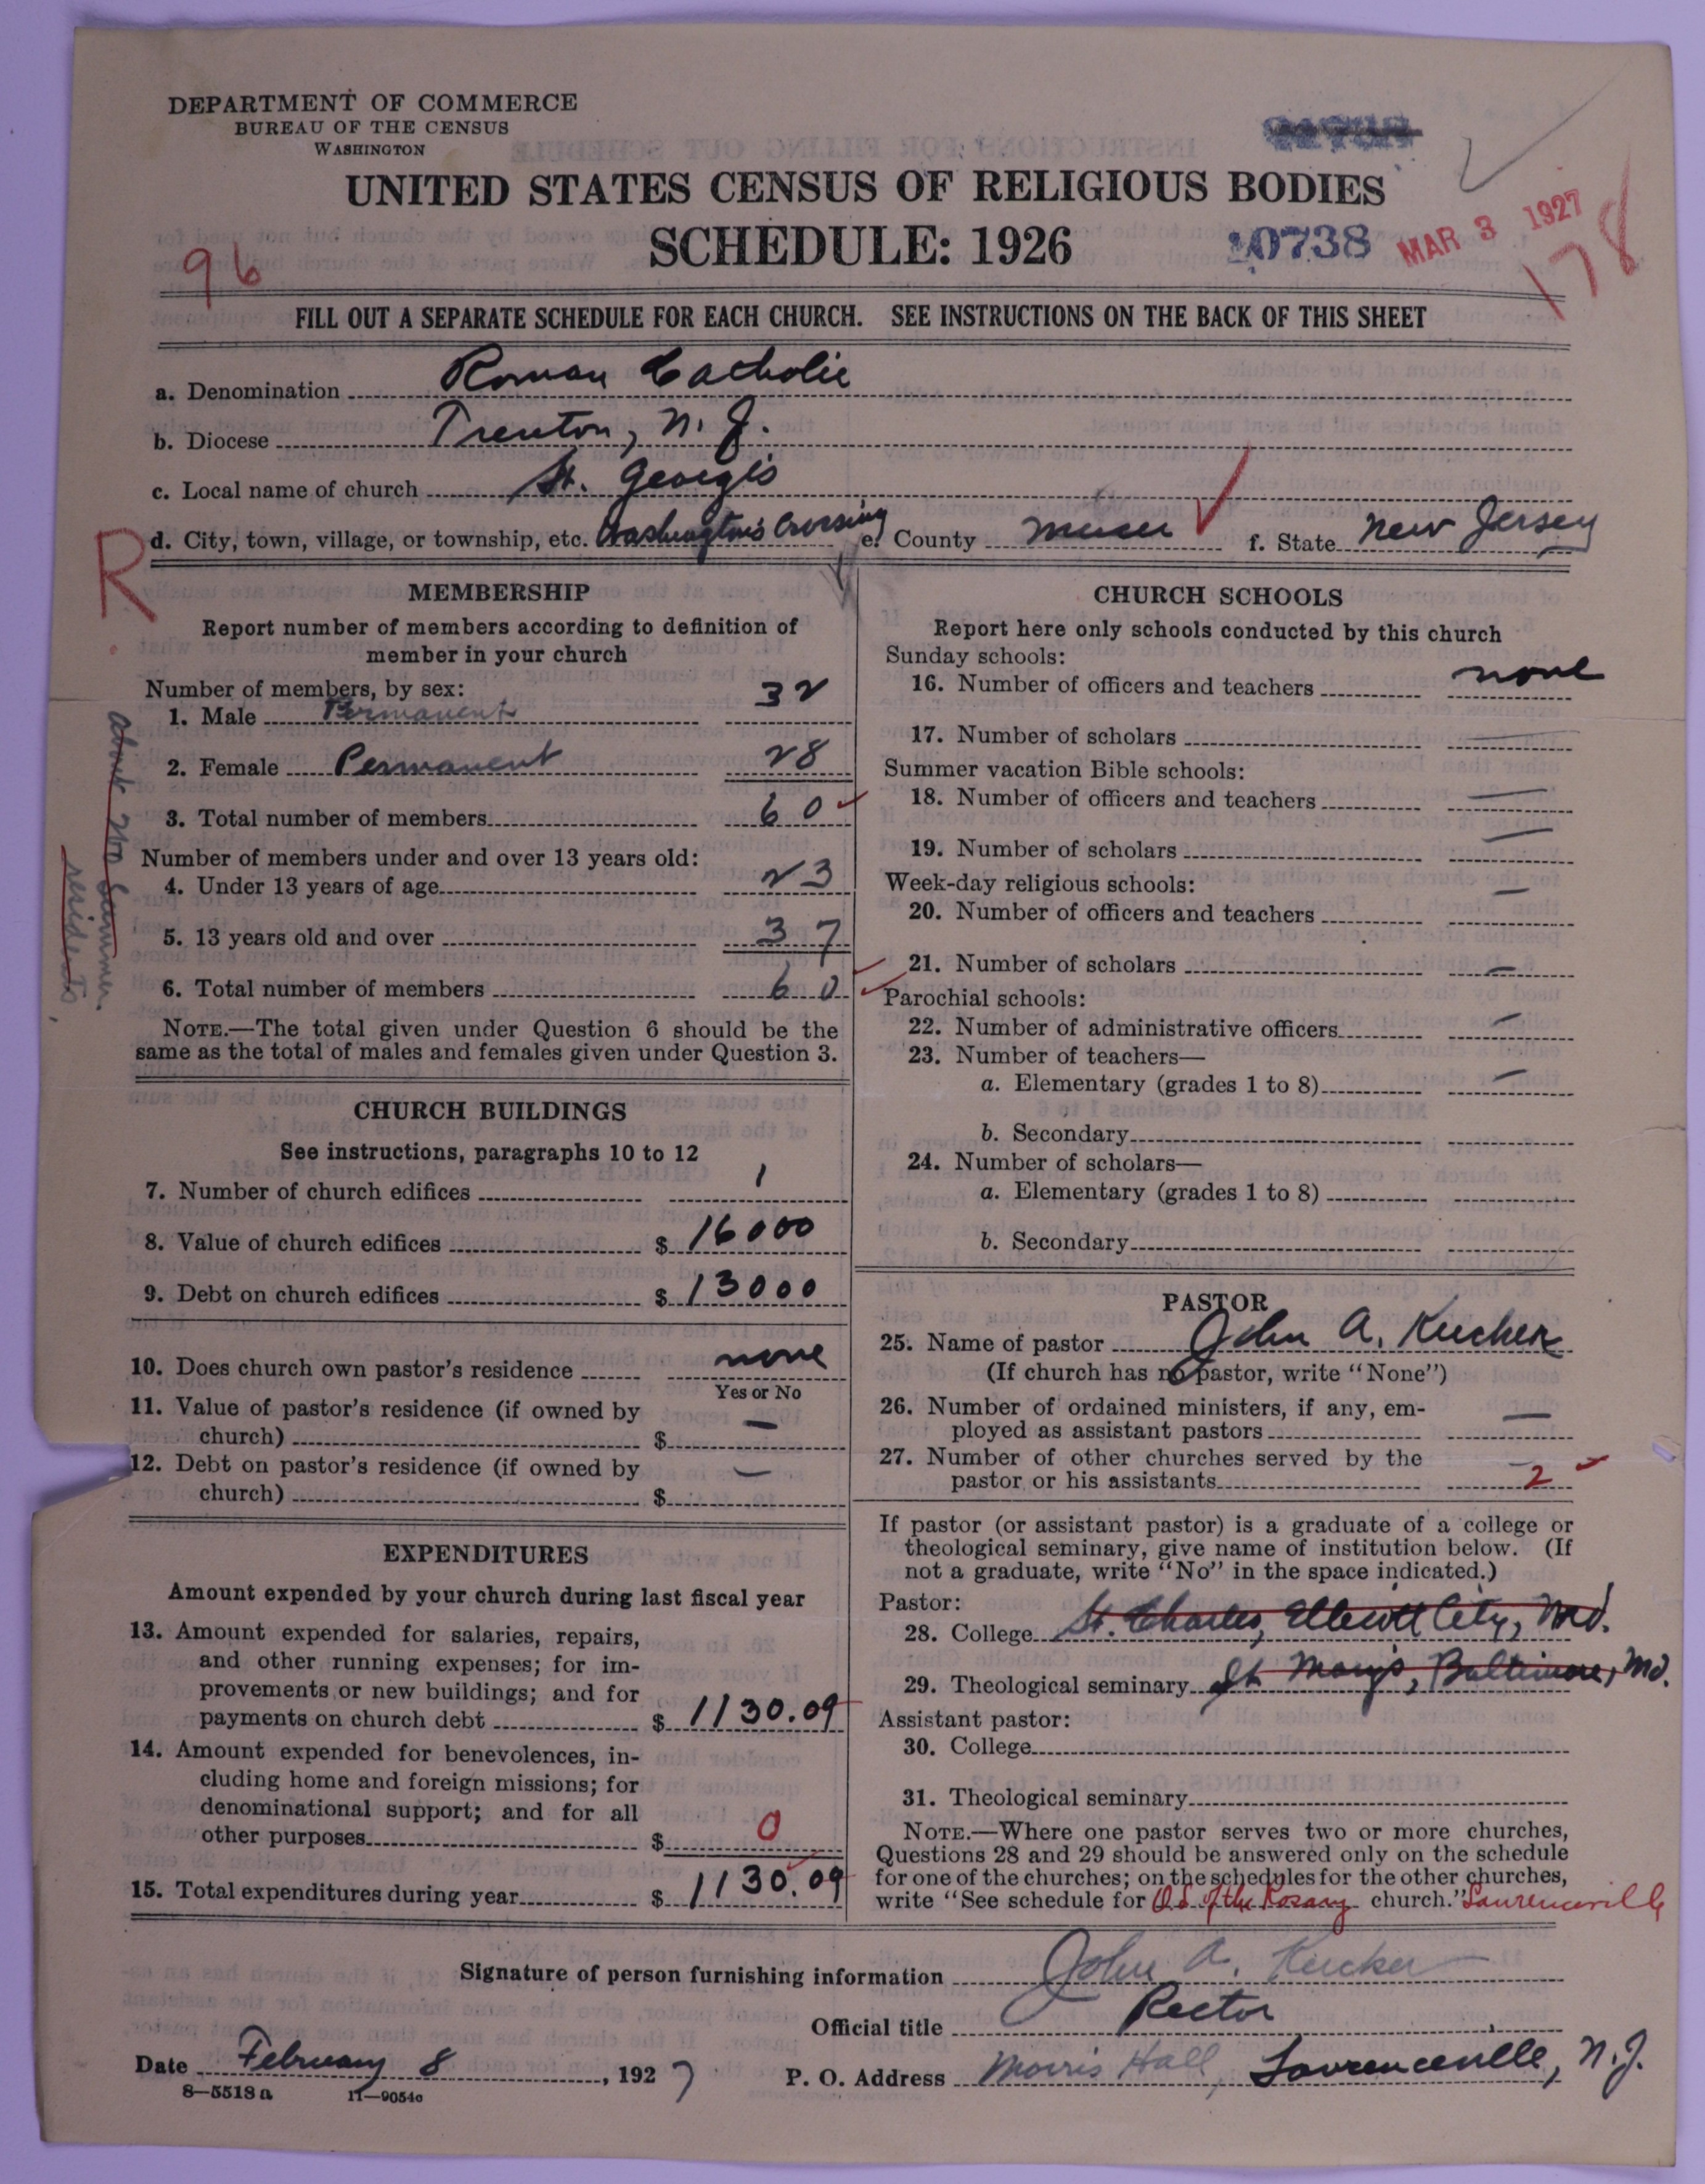 DEPARTMENT OF COMMERCE
BUREAU OF THE CENSUS
WASHINGTON
UNITED STATES CENSUS OF RELIGIOUS BODIES
SCHEDULE: 1926
96
10738
MAR 3 1927
178
FILL OUT A SEPARATE SCHEDULE FOR EACH CHURCH. SEE INSTRUCTIONS ON THE BACK OF THIS SHEET
a. Denomination Roman Catholic
b. Diocese Trenton, N. J.
c. Local name of church St. George's
d. City, town, village, or township, etc. Washington's Crossing e. County Mercer f. State New Jersey
R
MEMBERSHIP
Report number of members according to definition of
member in your church
Number of members, by sex:
1. Male Permanent 32
2. Female Permanent 28
3. Total number of members 60
Number of members under and over 13 years old:
4. Under 13 years of age 23
5. 13 years old and over 37
6. Total number of members 60
NOTE.—The total given under Question 6 should be the
same as the total of males and females given under Question 3.
about 200 Summer
residents.
CHURCH BUILDINGS
See instructions, paragraphs 10 to 12
7. Number of church edifices 1
8. Value of church edifices $ 16000
9. Debt on church edifices $ 13000
10. Does church own pastor's residence none
Yes or No
11. Value of pastor's residence (if owned by
church) $ —
12. Debt on pastor's residence (if owned by
church) $ —
EXPENDITURES
Amount expended by your church during last fiscal year
13. Amount expended for salaries, repairs,
and other running expenses; for im-
provements or new buildings; and for
payments on church debt $ 1130.09
14. Amount expended for benevolences, in-
cluding home and foreign missions; for
denominational support; and for all
other purposes $ 0
15. Total expenditures during year $ 1130.09
CHURCH SCHOOLS
Report here only schools conducted by this church
Sunday schools:
16. Number of officers and teachers none
17. Number of scholars —
Summer vacation Bible schools:
18. Number of officers and teachers —
19. Number of scholars —
Week-day religious schools:
20. Number of officers and teachers —
21. Number of scholars —
Parochial schools:
22. Number of administrative officers —
23. Number of teachers—
a. Elementary (grades 1 to 8) —
b. Secondary
24. Number of scholars—
a. Elementary (grades 1 to 8)
b. Secondary
PASTOR
25. Name of pastor John A. Kucker
(If church has no pastor, write "None")
26. Number of ordained ministers, if any, em-
ployed as assistant pastors —
27. Number of other churches served by the
pastor or his assistants 2
If pastor (or assistant pastor) is a graduate of a college or
theological seminary, give name of institution below. (If
not a graduate, write "No" in the space indicated.)
Pastor:
28. College St. Charles, Ellicott City, Md.
29. Theological seminary St Mary's, Baltimore, Md.
Assistant pastor:
30. College
31. Theological seminary
NOTE.—Where one pastor serves two or more churches,
Questions 28 and 29 should be answered only on the schedule
for one of the churches; on the schedules for the other churches,
write "See schedule for O L of the Rosary church." Lawrenceville
Signature of person furnishing information John A. Kucker
Official title Rector
Date February 8, 1927 P. O. Address Morris Hall, Lawrenceville, N. J.
8—5518 a 11—9054c